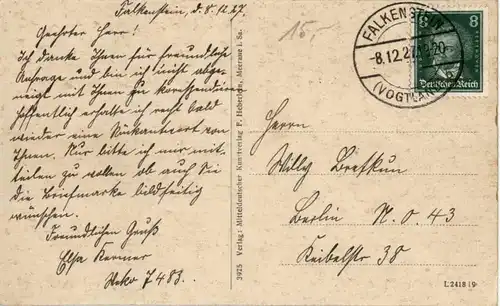 Falkenstein, d. 8.12.27.
Geehrter Herr!
Ich danke Ihnen für freundliche
Anfrage und bin ich nicht abge-
neigt mit Ihnen zu korrespondieren
Hoffentlich erhalte ich recht bald
wieder eine Rückantwort von
Ihnen. Nur bitte ich mir mit-
teilen zu wollen ob auch Sie
die Briefmarke bildseitig
wünschen.
Freundlichen Gruß
Elsa
7483.
15,-
FALKENSTEIN
-8.12.27
(VOGTLAND)
8 8
Deutsches Reich
Herrn
Willy
Berlin N. O. 43
Keibelstr 38
3925 Verlag: Mitteldeutscher Kunstverlag F. Heberlein, Meerane i. Sa.
L 2418 19